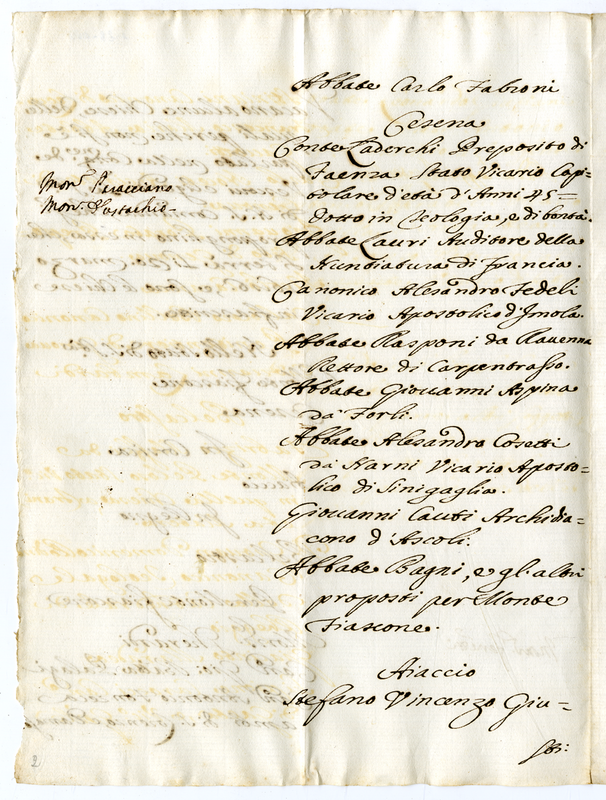 Abbate Carlo Fabroni
Cesena
Conte Laderchi Preposito di
Faenza Stato Vicario Capi-
tolare d'età d'Anni 45=
dotto in Teologia, e di bontà.
Abbate Lauri Auditore della
Nuntiatura di Francia.
Canonico Alesandro Fedeli
Vicario Apostolico d'Imola
Abbate Rasponi da Ravenna
Rettore di Carpentrasso.
Abbate Giovanni Aspina
da Forlì.
Abbate Alesandro Cosetti
da Narni Vicario Aposto=
lico di Sinigaglia.
Giovanni Cauti Archidia=
cono d'Ascoli.
Abbate Bagni, e gl'altri
proposti per Monte
Fiascone.
Aiaccio
Stefano Vincenzo Giu=
Mon.r
Mon.r Eustachio
2